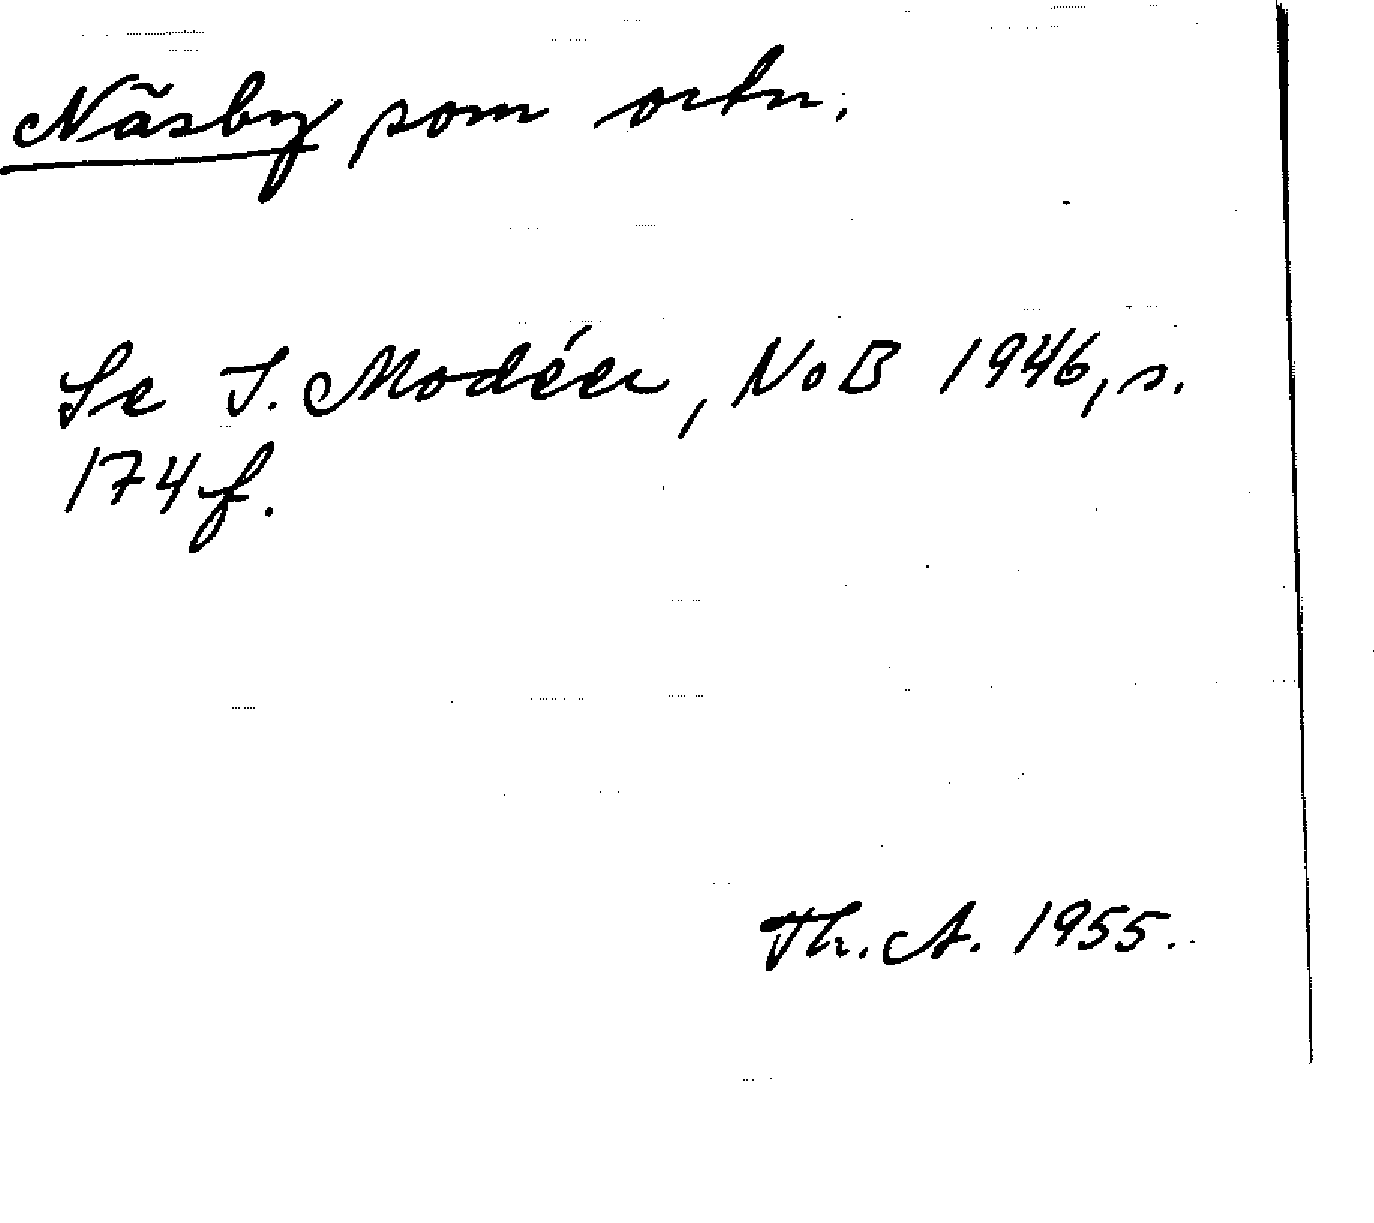 Näsby som ortn.
Se I. Modéer, NoB 1946, s.
174 f.
Th. A. 1955.